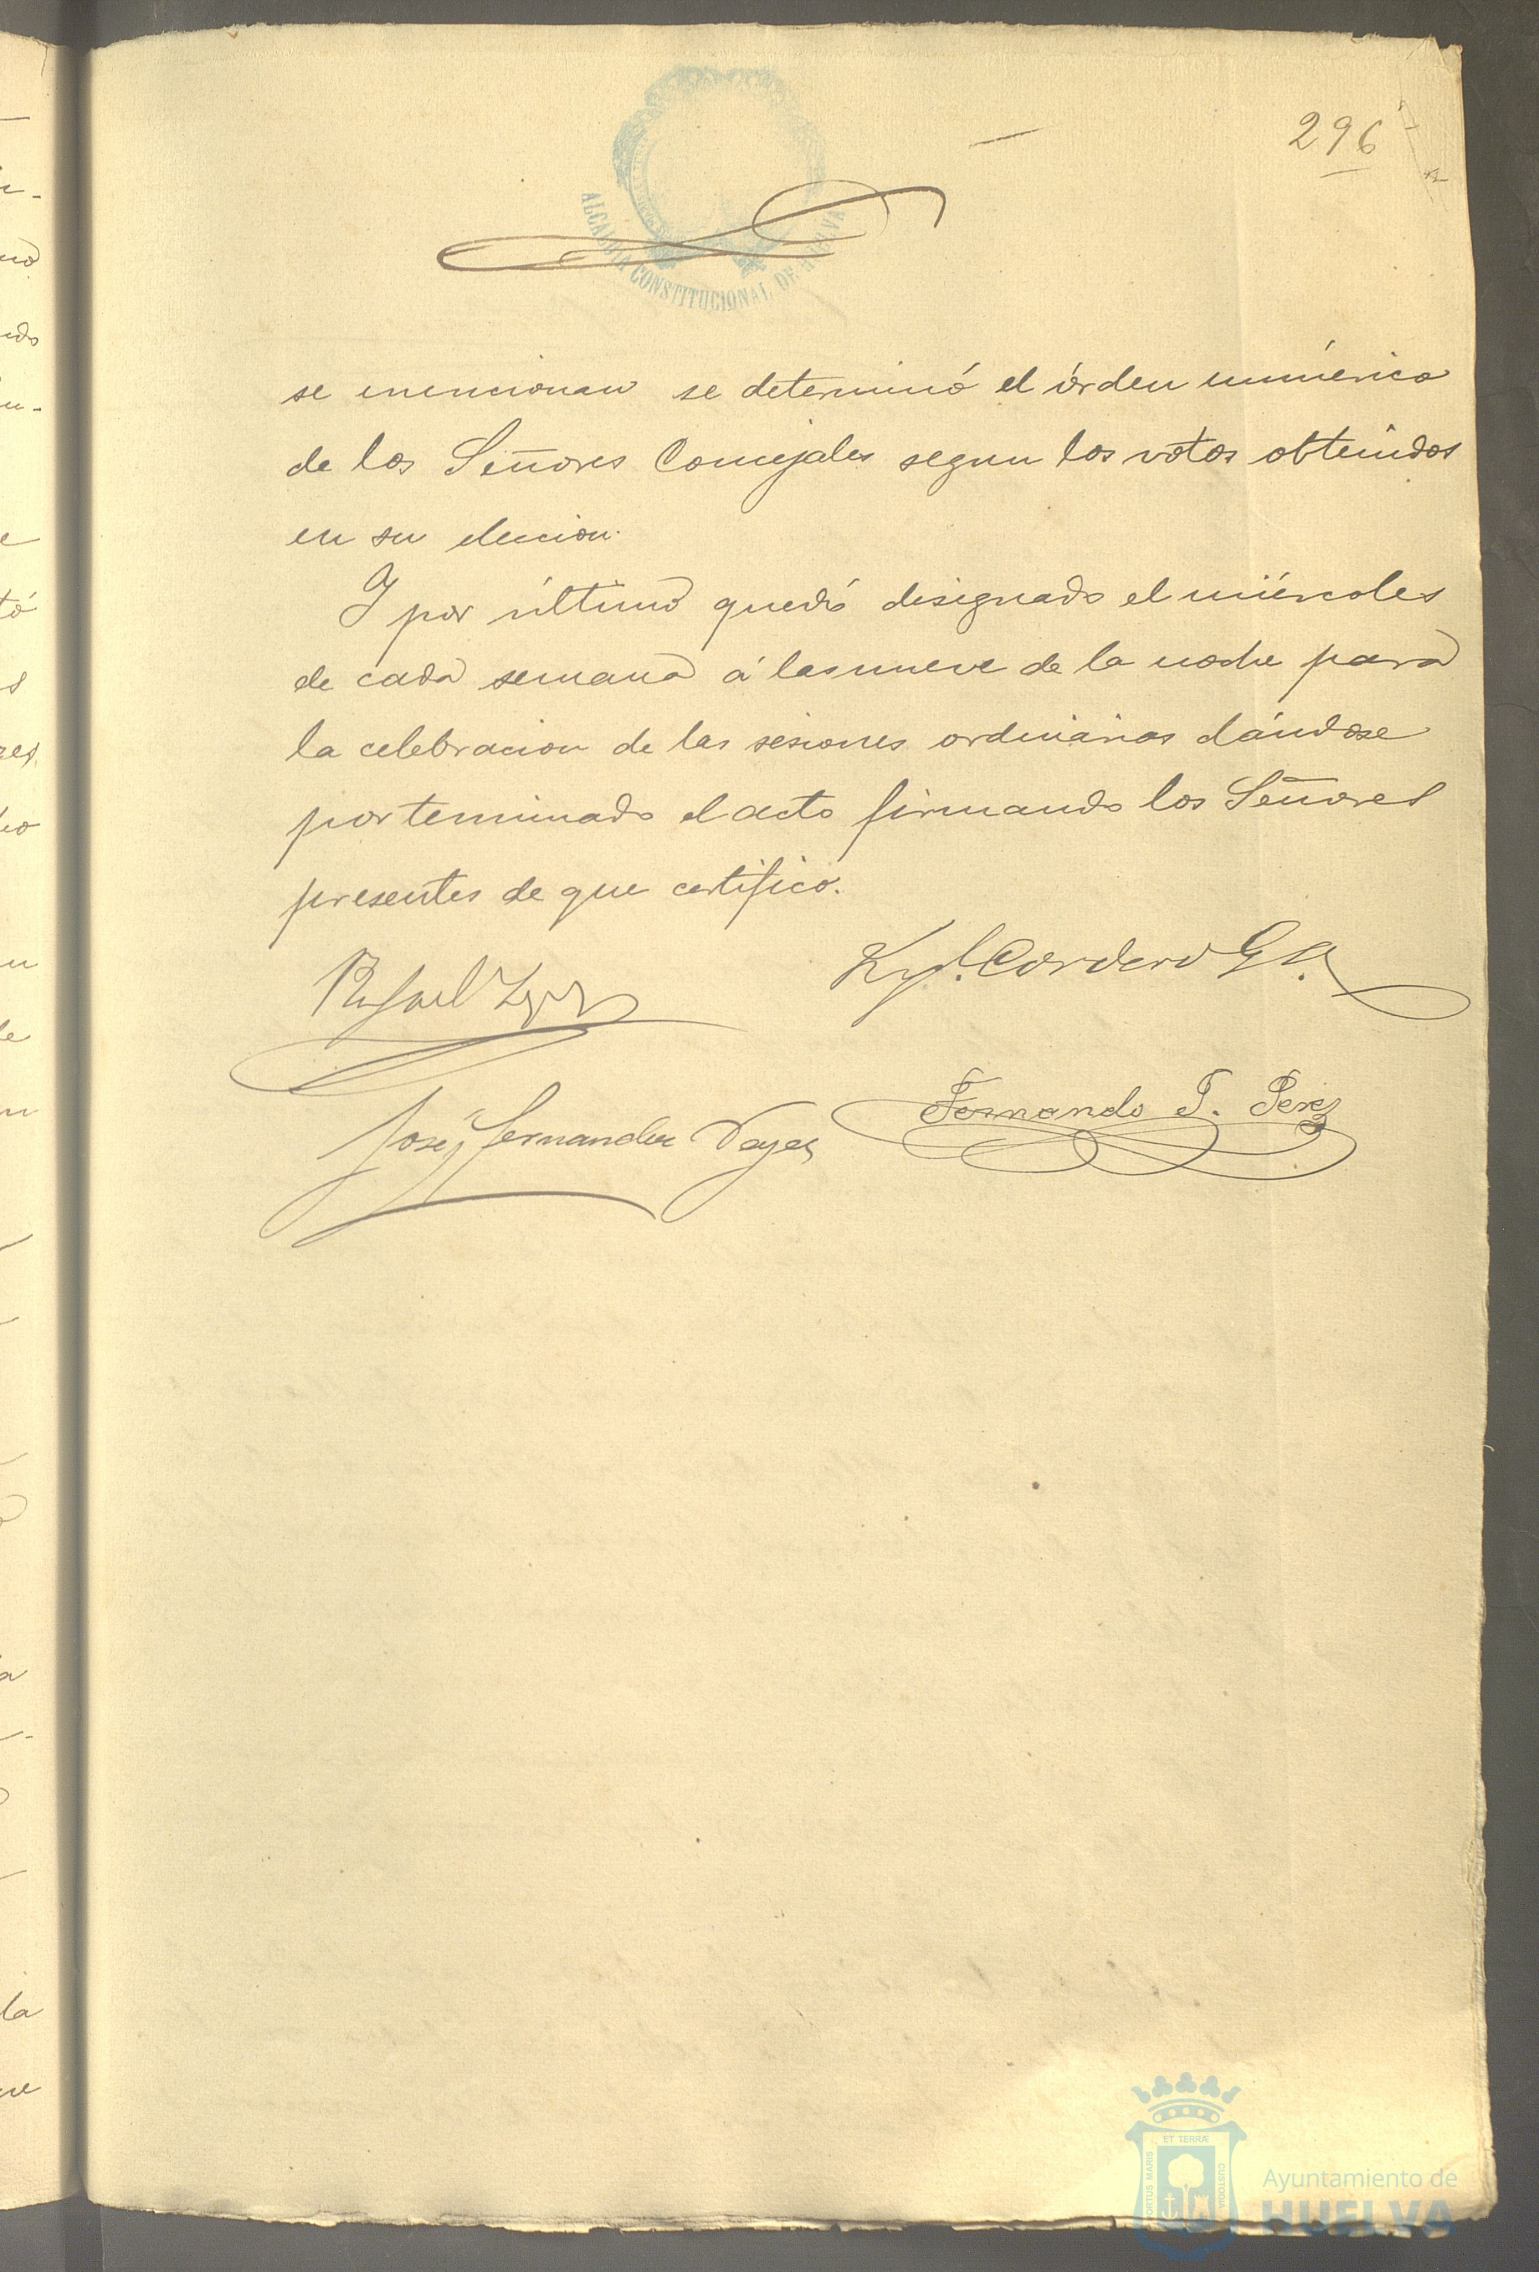 296
ALCALDIA CONSTITUCIONAL DE HUELVA
se mencionan se determinó el órden numérico
de los Señores Concejales segun los votos obtenidos
en su eleccion.
Y por último quedó designado el miércoles
de cada semana á las nueve de la noche para
la celebracion de las sesiones ordinarias dándose
por terminado el acto firmando los Señores
presentes de que certifico.
Rafael
Cordero
Fernando T. Perez
José Fernandez
PORTUS MARIS ET TERRÆ CUSTODIA
Ayuntamiento de
HUELVA